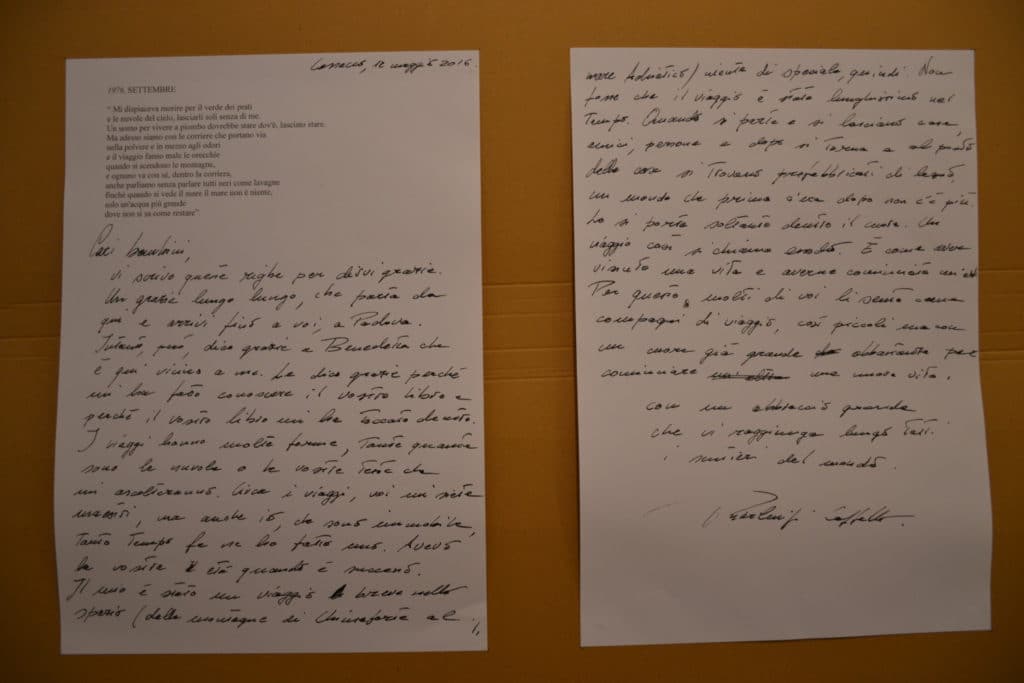 Cassacco, 12 maggio 2016.
1976. SETTEMBRE
" Mi dispiaceva morire per il verde dei prati
e le nuvole del cielo, lasciarli soli senza di me.
Un uomo per vivere a piombo dovrebbe stare dov'è, lasciato stare.
Ma adesso siamo con le corriere che portano via
nella polvere e in mezzo agli odori
e il viaggio fanno male le orecchie
quando si scendono le montagne,
e ognuno va con sé, dentro la corriera,
anche parliamo senza parlare tutti neri come lavagne
finché quando si vede il mare il mare non è niente,
solo un'acqua più grande
dove non si sa come restare"
Cari bambini,
vi scrivo queste righe per dirvi grazie.
Un grazie lungo lungo, che parta da
qui e arrivi fino a voi, a Padova.
Intanto, però, dico grazie a Benedetta che
è qui vicino a me. Le dico grazie perché
mi ha fatto conoscere il vostro libro e
perché il vostro libro mi ha toccato dentro.
I viaggi hanno molte forme, tante quante
sono le nuvole o le vostre teste che
mi ascolteranno. Circa i viaggi, voi mi siete
maestri, ma anche io, che sono immobile,
tanto tempo fa ne ho fatto uno. Avevo
la vostra età quando è successo.
Il mio è stato un viaggio breve nello
spazio (dalle montagne di Chiusaforte al
1,
mare Adriatico) niente di speciale, quindi. Non
fosse che il viaggio è stato lunghissimo nel
tempo. Quando si parte e si lasciano case,
amici, persone e dopo si torna e al posto
delle case si trovano prefabbricati di legno,
un mondo che prima c'era dopo non c'è più.
Lo si porta soltanto dentro il cuore. Un
viaggio così si chiama esodo. È come avere
vissuto una vita e averne cominciata un'altra
Per questo, molti di voi li sento come
compagni di viaggio, così piccoli ma con
un cuore già grande abbastanza per
cominciare una nuova vita.
con un abbraccio grande
che vi raggiunga lungo tutti
i sentieri del mondo.
Pierluigi Cappello